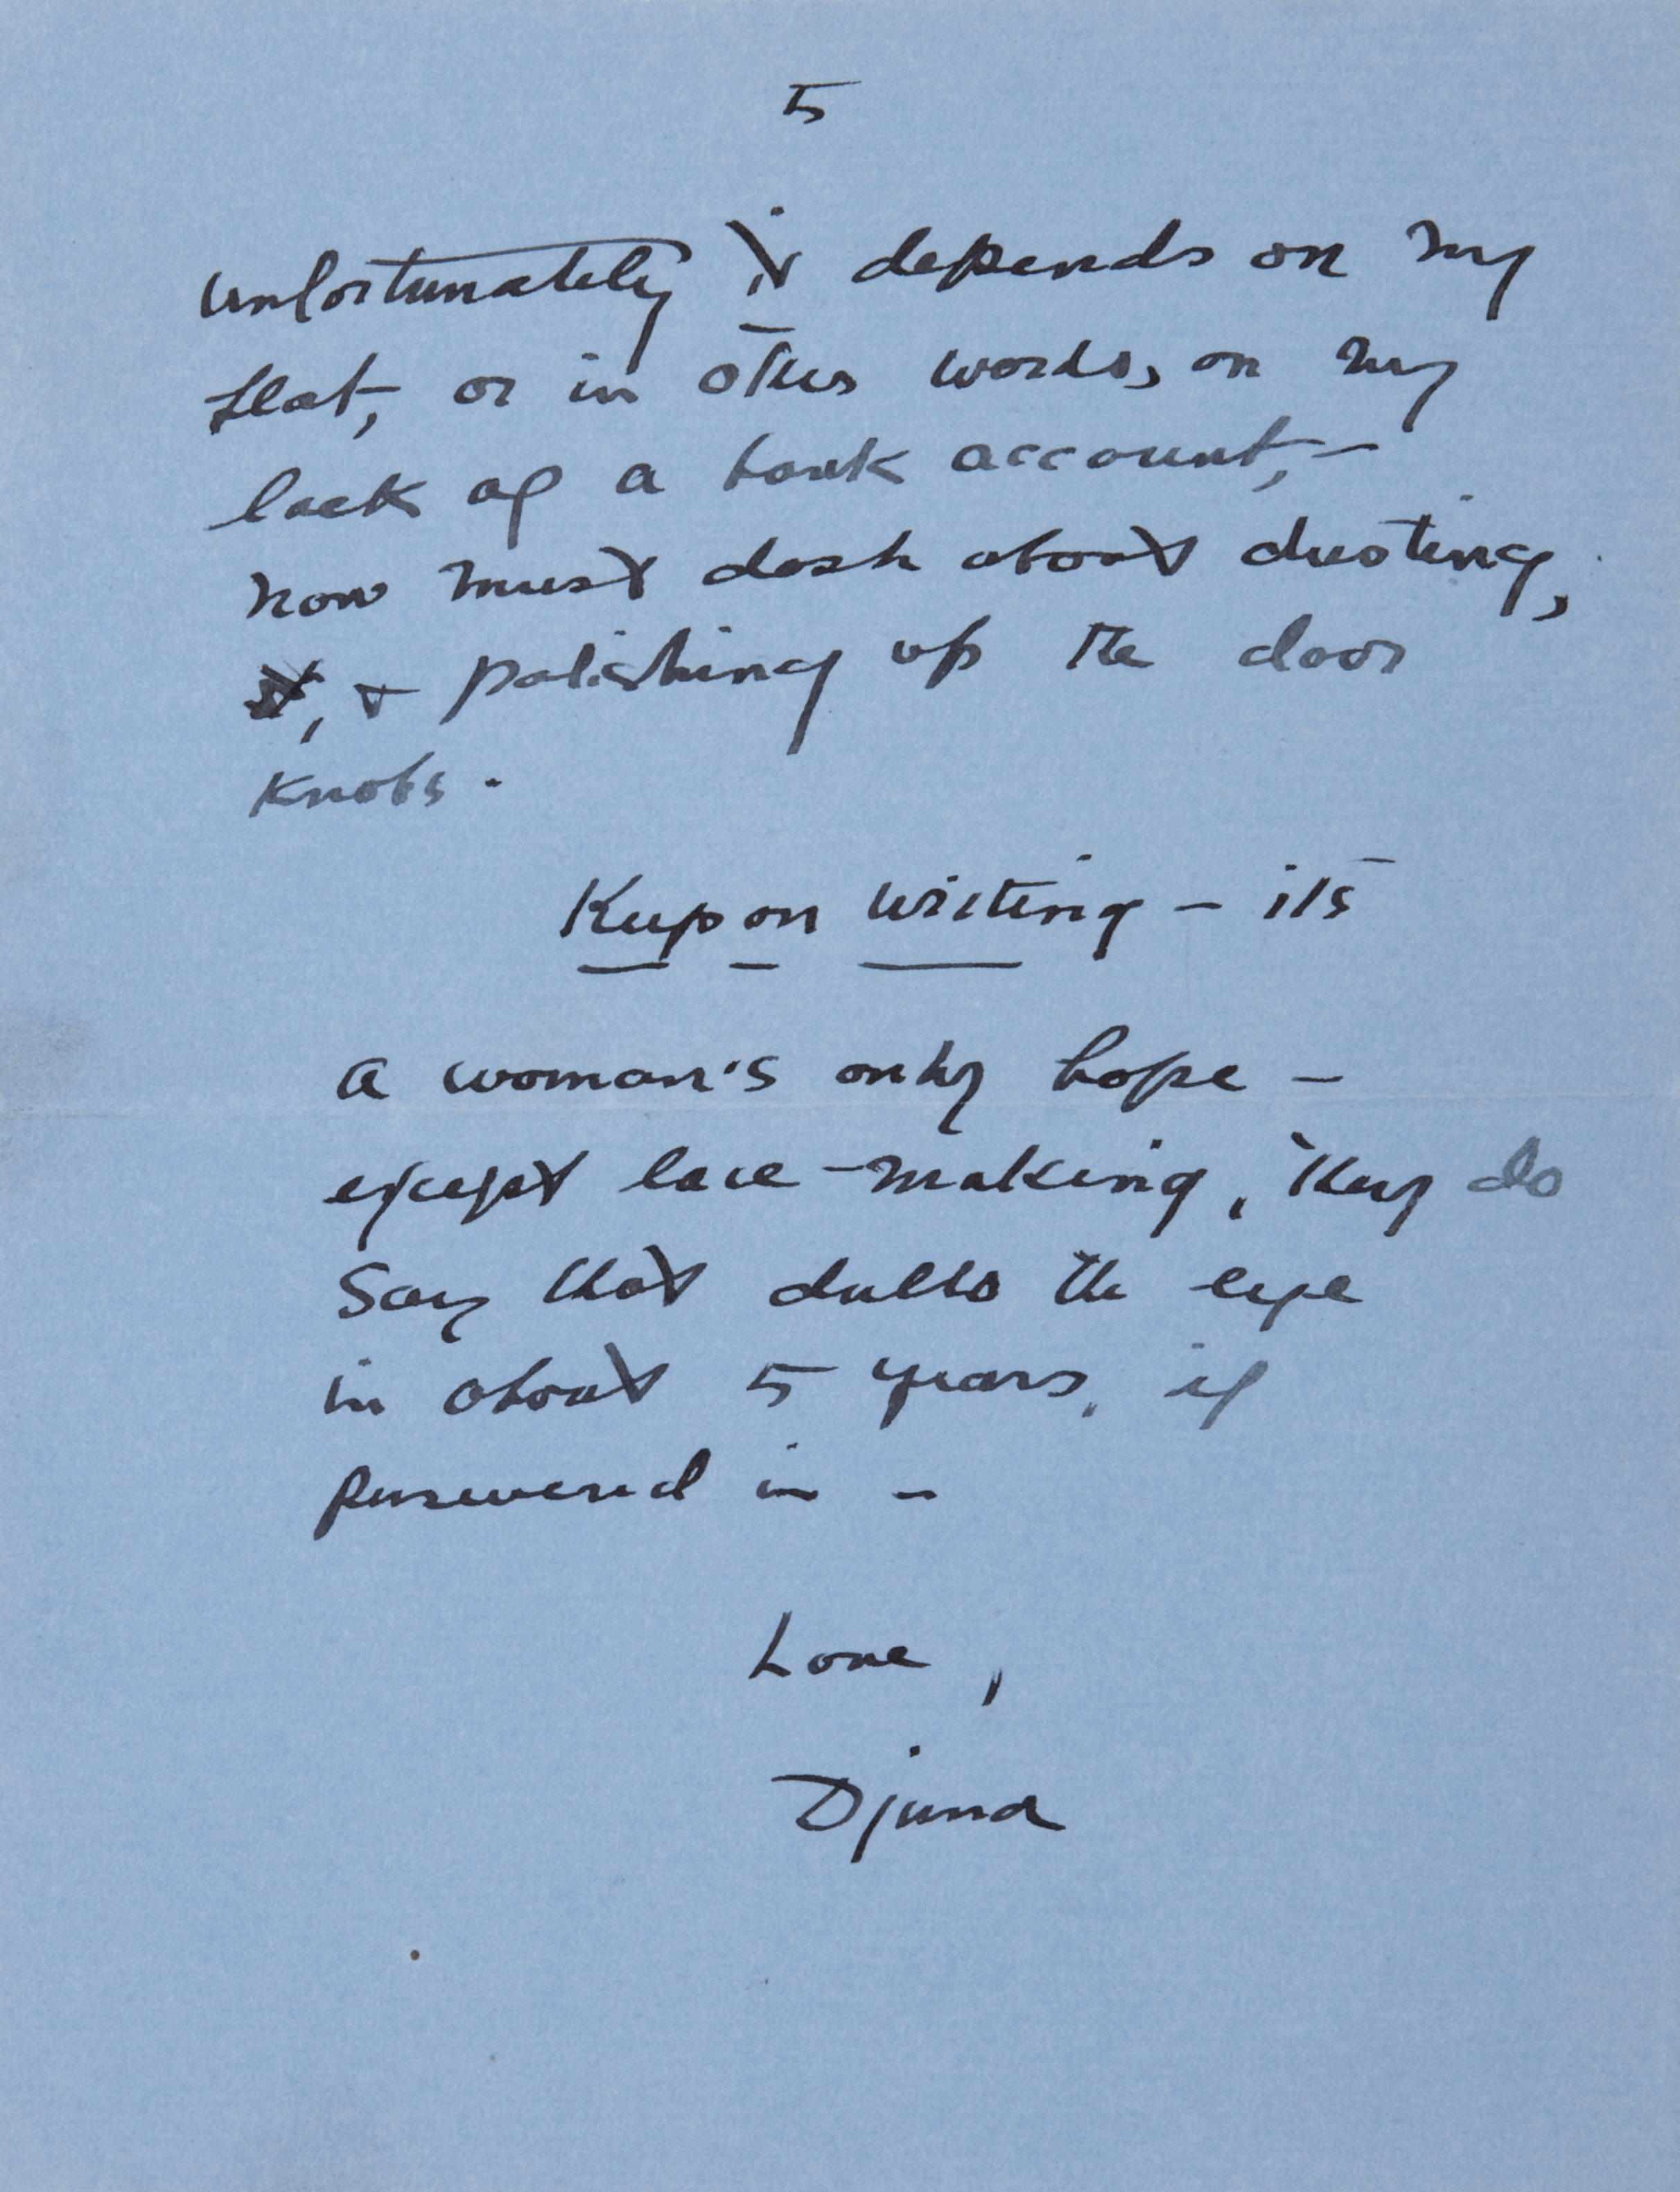 5
unfortunately it depends on my
flat, or in other words, on my
lack of a bank account, –
now must dash about dusting,
, & polishing up the door
knobs.
Keep on writing – its
a woman's only hope –
except lace-making, they do
say that dulls the eye
in about 5 years, if
persevered in –
Love,
Djuna